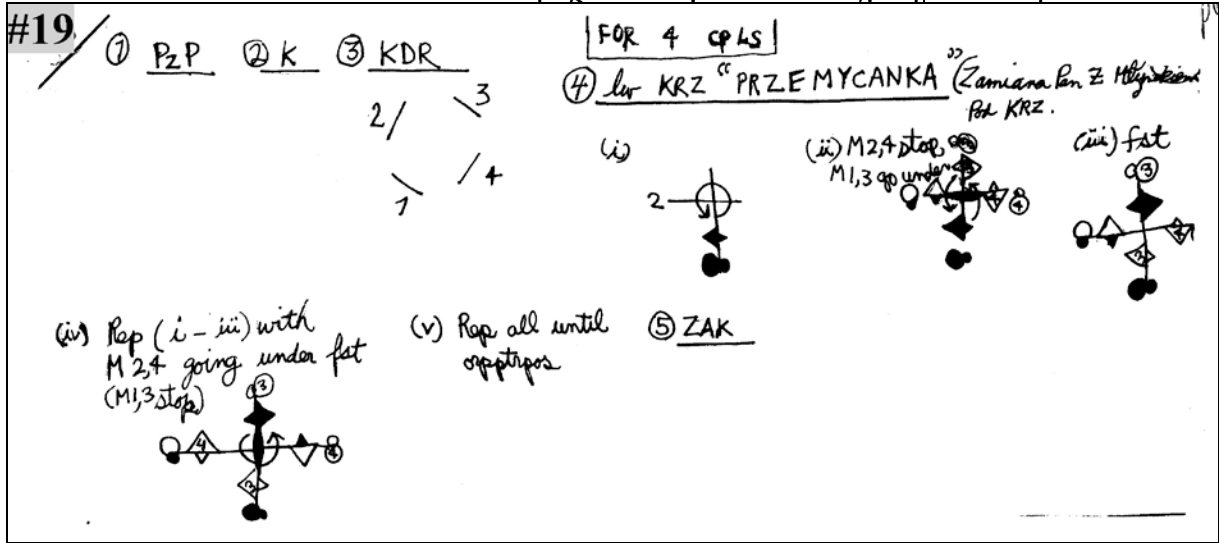 #19
① PzP ② K ③ KDR
FOR 4 CPLS
④ lw KRZ "PRZEMYCANKA" (Zamiana Pan Z
Pod KRZ.
2 3
1 4
(i)
2
(ii) M2,4 stop
M1,3 go under
4
(iii) fst
3
3
(iv) Rep (i – iii) with
M 2,4 going under fst
(M1,3 stop)
3
4 4
3
(v) Rep all until
orpptrpos
⑤ ZAK